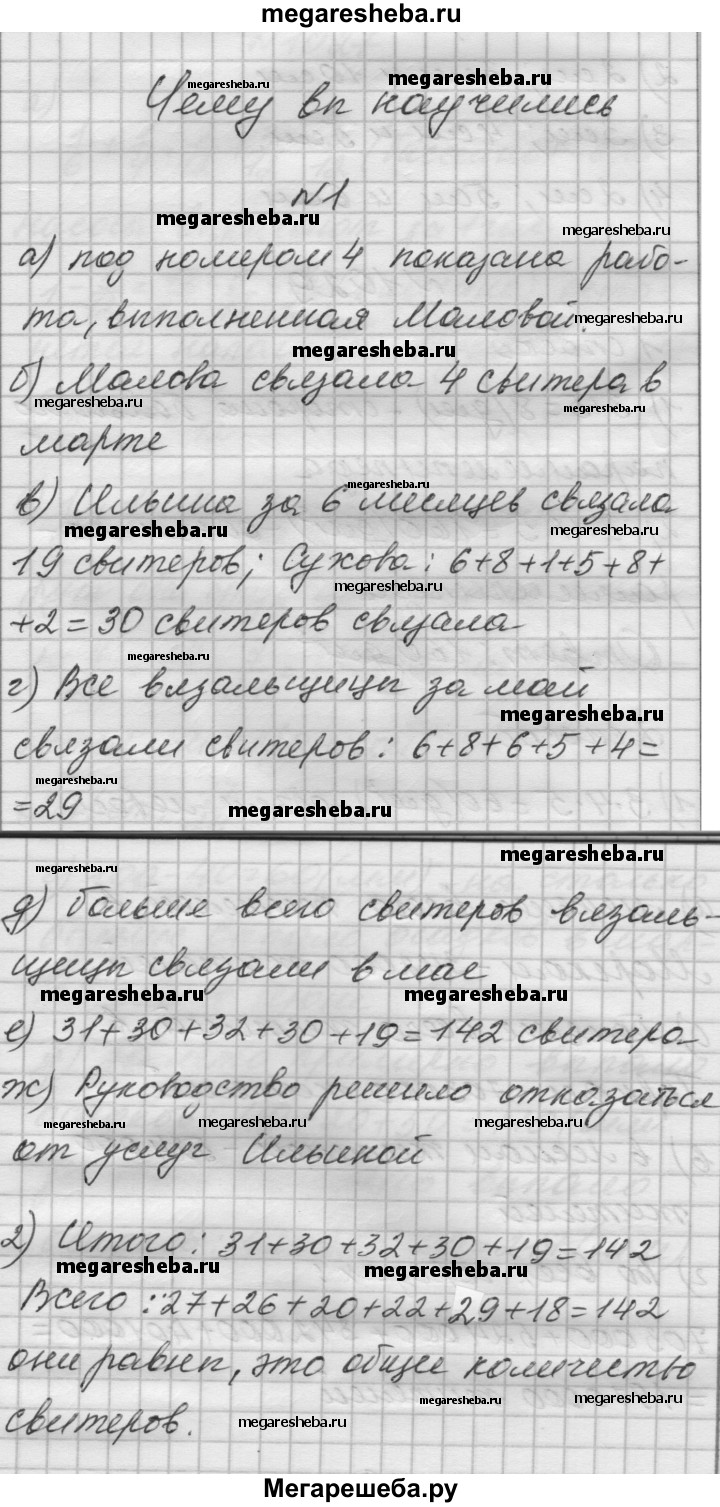 megaresheba.ru
megaresheba.ru megaresheba.ru
Чему вы научились
№1
megaresheba.ru megaresheba.ru
а) под номером 4 показана рабо-
та, выполненная Маловой. megaresheba.ru
megaresheba.ru
б) Малова связала 4 свитера в
megaresheba.ru megaresheba.ru
марте
megaresheba.ru
в) Ильина за 6 месяцев связала
megaresheba.ru megaresheba.ru
19 свитеров; Сухова: 6+8+1+5+8+
megaresheba.ru
+2=30 свитеров связала
megaresheba.ru
г) Все вязальщицы за май
megaresheba.ru
связали свитеров: 6+8+6+5+4=
megaresheba.ru
=29 megaresheba.ru
megaresheba.ru
megaresheba.ru
д) Больше всего свитеров вязаль-
щицы связали в мае
megaresheba.ru megaresheba.ru
е) 31+30+32+30+19=142 свитера
ж) Руководство решило отказаться
megaresheba.ru megaresheba.ru megaresheba.ru
от услуг Ильиной
2) Итого: 31+30+32+30+19=142
megaresheba.ru megaresheba.ru
Всего: 27+26+20+22+29+18=142
они равны, это общее количество
megaresheba.ru megaresheba.ru
свитеров. megaresheba.ru
Мегарешеба.ру